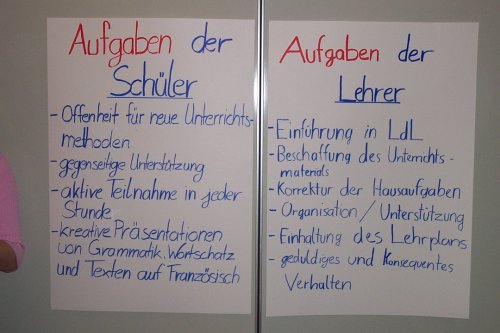 Aufgaben der
Schüler
- Offenheit für neue Unterrichts-
methoden
- gegenseitige Unterstützung
- aktive Teilnahme in jeder
Stunde
- kreative Präsentationen
von Grammatik, Wortschatz
und Texten auf Französisch
Aufgaben der
Lehrer
- Einführung in LdL
- Beschaffung des Unterrichts-
materials
- Korrektur der Hausaufgaben
- Organisation / Unterstützung
- Einhaltung des Lehrplans
- geduldiges und konsequentes
Verhalten